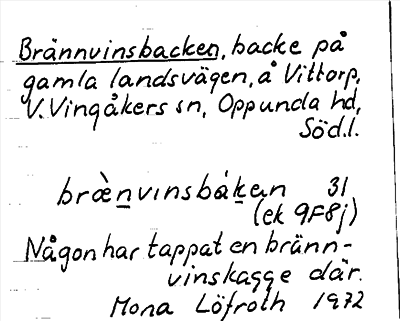 Brännvinsbacken, backe på
gamla landsvägen, å Vittorp,
V. Vingåkers sn, Oppunda hd,
Söd.l.
bræ̀nvinsbákan 31
(ek 9F8j)
Någon har tappat en bränn-
vinskagge där.
Mona Löfroth 1972